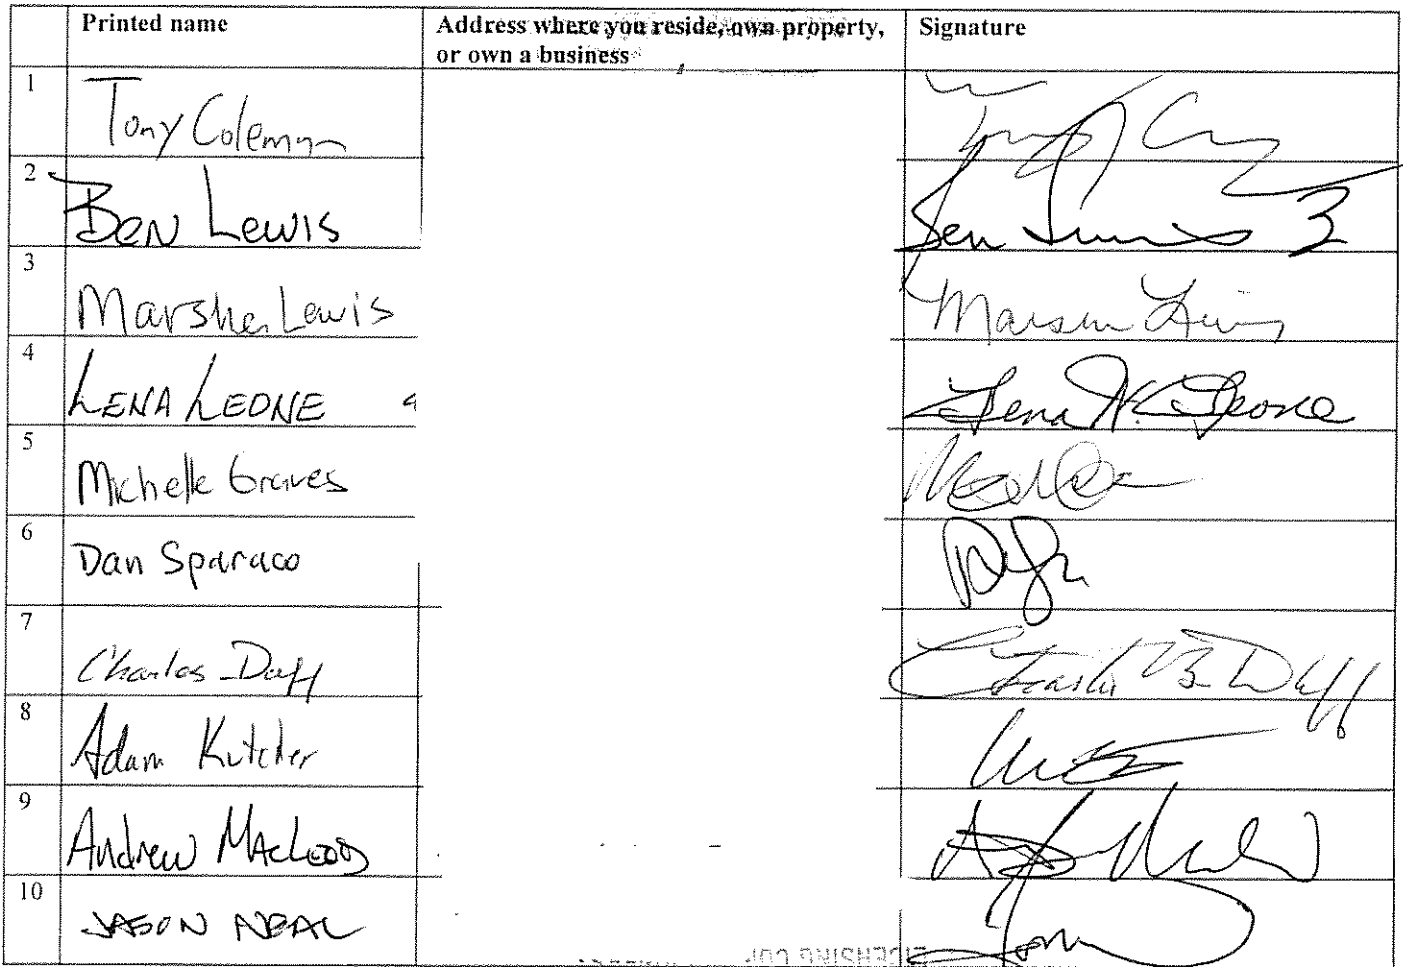 Printed name Address where you reside, own property, or own a business Signature
1 Tony Coleman
2 Ben Lewis Ben Lewis 3
3 Marsha Lewis Marsha Lewis
4 LENA LEONE Lena N. Leone
5 Michelle Graves
6 Dan Sparaco
7 Charles Duff Charles B Duff
8 Adam Kutcher
9 Andrew MacLeod
10 JASON NEAL